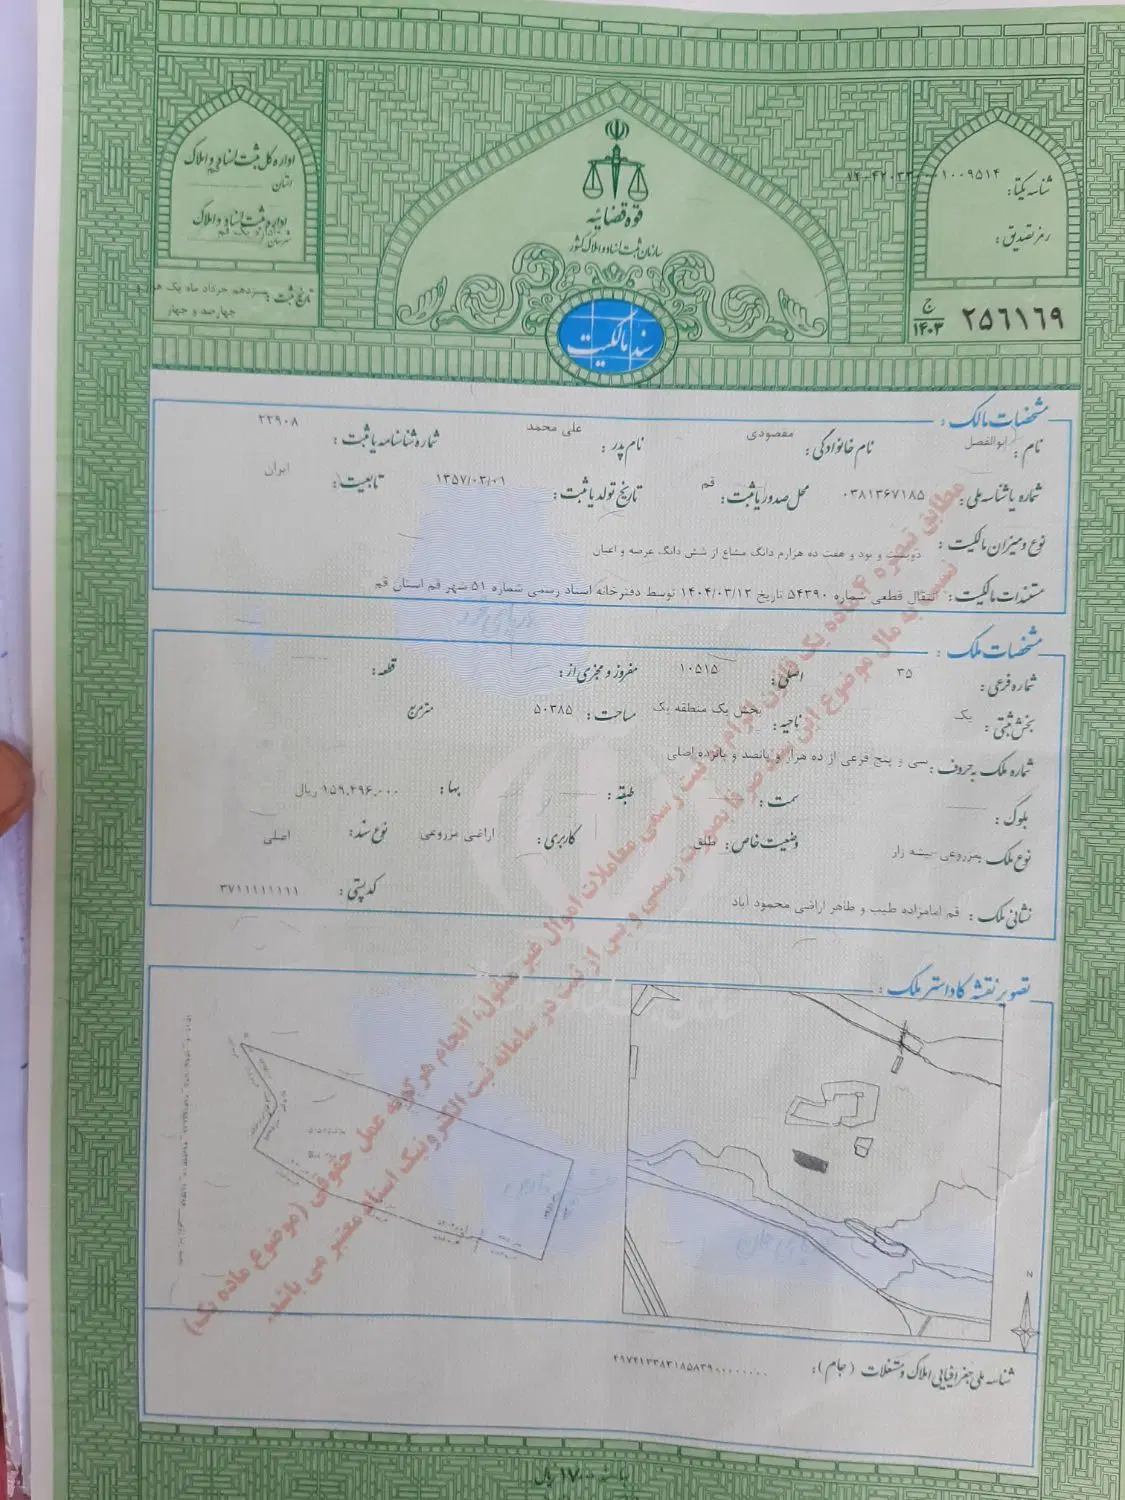 قوه قضائیه
سازمان ثبت اسناد و املاک کشور
سند مالکیت
اداره کل ثبت اسناد و املاک
استان قم
اداره ثبت اسناد و املاک
شهرستان
تاریخ ثبت: سیزدهم خرداد ماه یک
چهارصد و چهار
شناسه یکتا:
رمز تصدیق:
۲۵۶۱۶۹ ج ۱۴۰۳
مشخصات مالک:
نام: ابوالفضل نام خانوادگی: مقصودی نام پدر: علی محمد شماره شناسنامه یا ثبت: ۲۲۹۰۸
شماره یا شناسه ملی: ۰۳۸۱۳۶۷۱۸۵ محل صدور یا ثبت: قم تاریخ تولد یا ثبت: ۱۳۵۷/۰۳/۰۱ تابعیت: ایران
نوع و میزان مالکیت: دویست و نود و هفت ده هزارم دانگ مشاع از شش دانگ عرصه و اعیان
مستندات مالکیت: انتقال قطعی شماره ۵۴۳۹۰ تاریخ ۱۴۰۴/۰۳/۱۲ توسط دفترخانه اسناد رسمی شماره ۵۱ شهر قم استان قم
مشخصات ملک:
شماره فرعی: ۳۵ اصلی: ۱۰۵۱۵ مفروز و مجزی از: قطعه:
بخش ثبتی: یک ناحیه: بخش یک منطقه یک مساحت: ۵۰۳۸۵ مترمربع
شماره ملک به حروف: سی و پنج فرعی از ده هزار و پانصد و پانزده اصلی
بلوک: سمت: طبقه: بها: ۱۵۹,۴۹۶,۰۰۰ ریال
نوع ملک: مزروعی-بیشه زار وضعیت خاص: طلق کاربری: اراضی مزروعی نوع سند: اصلی
نشانی ملک: قم امامزاده طیب و طاهر اراضی محمود آباد کدپستی: ۳۷۱۱۱۱۱۱۱۱
مطابق تبصره ۴ ماده یک قانون الزام به ثبت رسمی معاملات اموال غیر منقول، انجام هر گونه عمل حقوقی (موضوع ماده یک)
نسبت به مال موضوع این سند صرفا بصورت رسمی و پس از ثبت در سامانه ثبت الکترونیک اسناد معتبر می باشد.
تصویر نقشه کاداستر ملک:
N
شناسه ملی جغرافیایی املاک و مستغلات (جام):